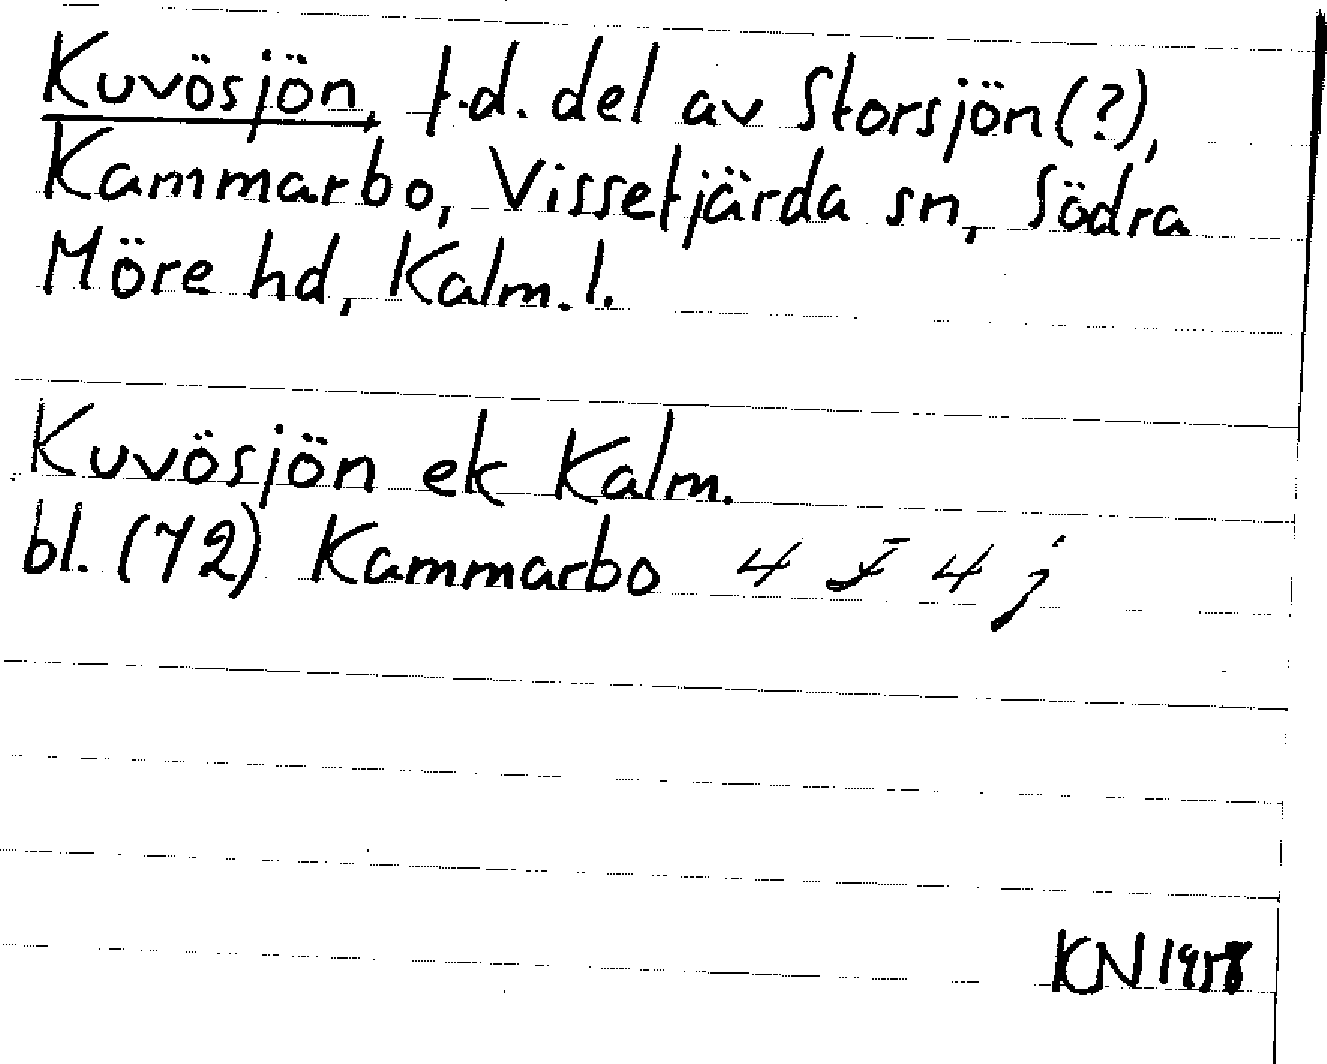 Kuvösjön, f.d. del av Storsjön (?),
Kammarbo, Vissefjärda sn, Södra
Möre hd, Kalm. l.
Kuvösjön ek Kalm.
bl. (72) Kammarbo 4 I 4 j
KN 1958